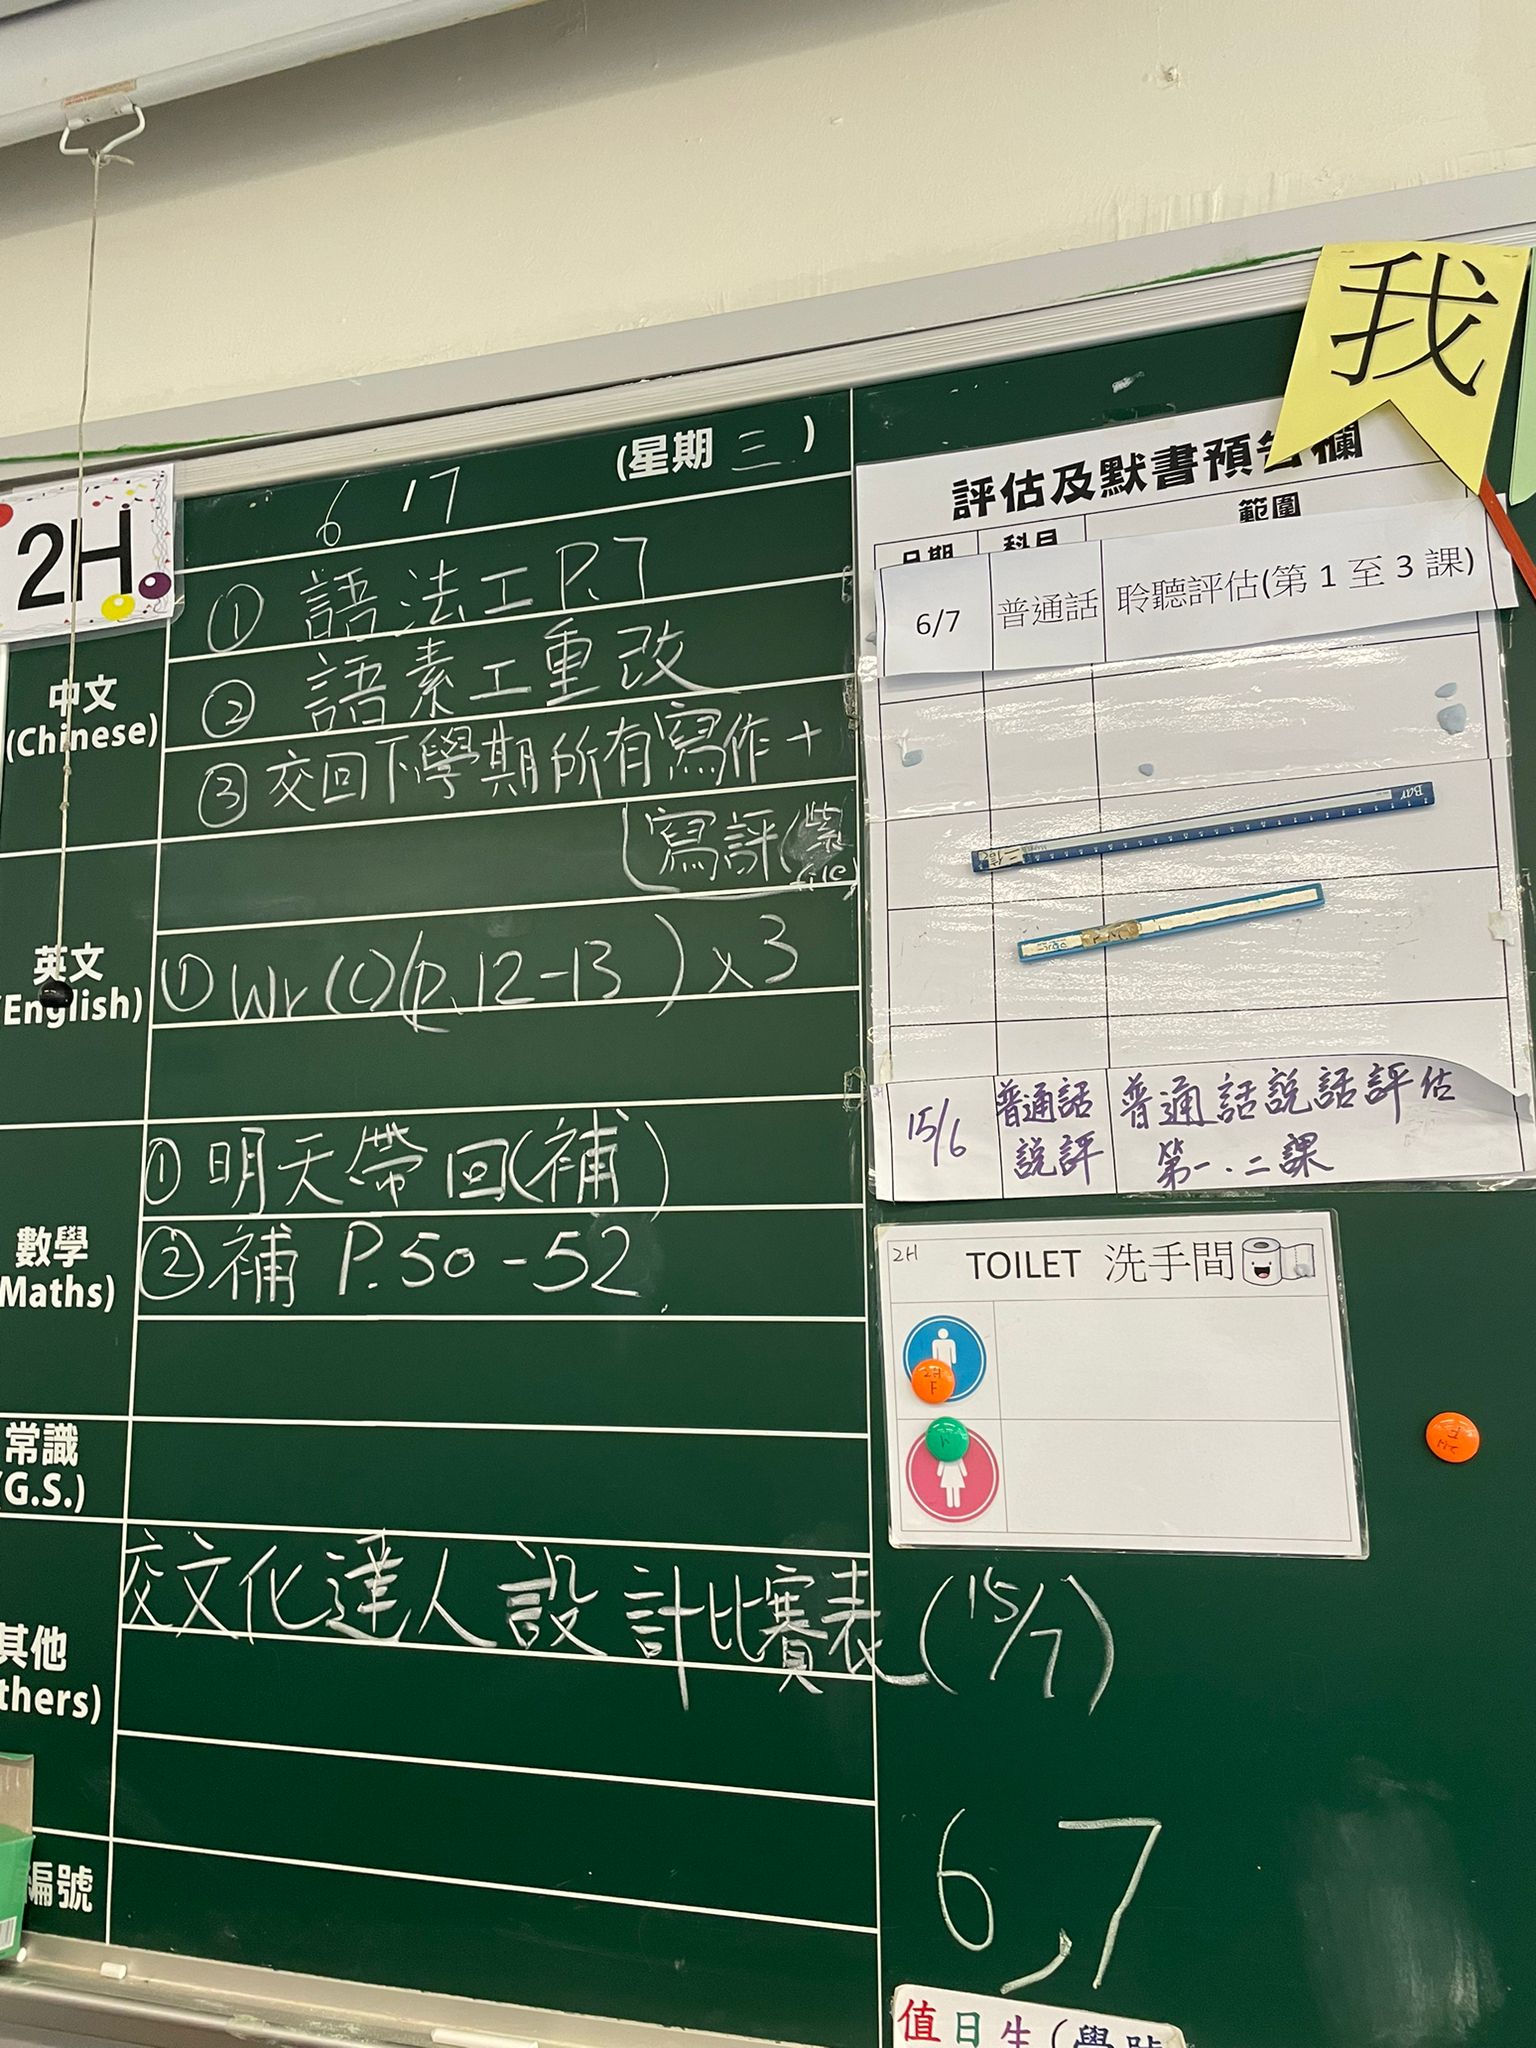 2H
6 17
(星期 三)
中文
(Chinese)
① 語法工 P.7
② 語素工重改
③ 交回下學期所有寫作+
寫評(紫
file)
英文
(English)
① Wr(C)(P.12-13)x3
數學
Maths)
① 明天帶回(補)
② 補 P.50-52
常識
(G.S.)
其他
thers)
交文化達人設計比賽表(15/7)
編號
我
評估及默書預告欄
日期 科目 範圍
6/7 普通話 聆聽評估(第1至3課)
Bar
15/6 普通話說評 普通話說話評估
第一.二課
2H TOILET 洗手間
2H
F
2H
F
6,7
值日生(學號